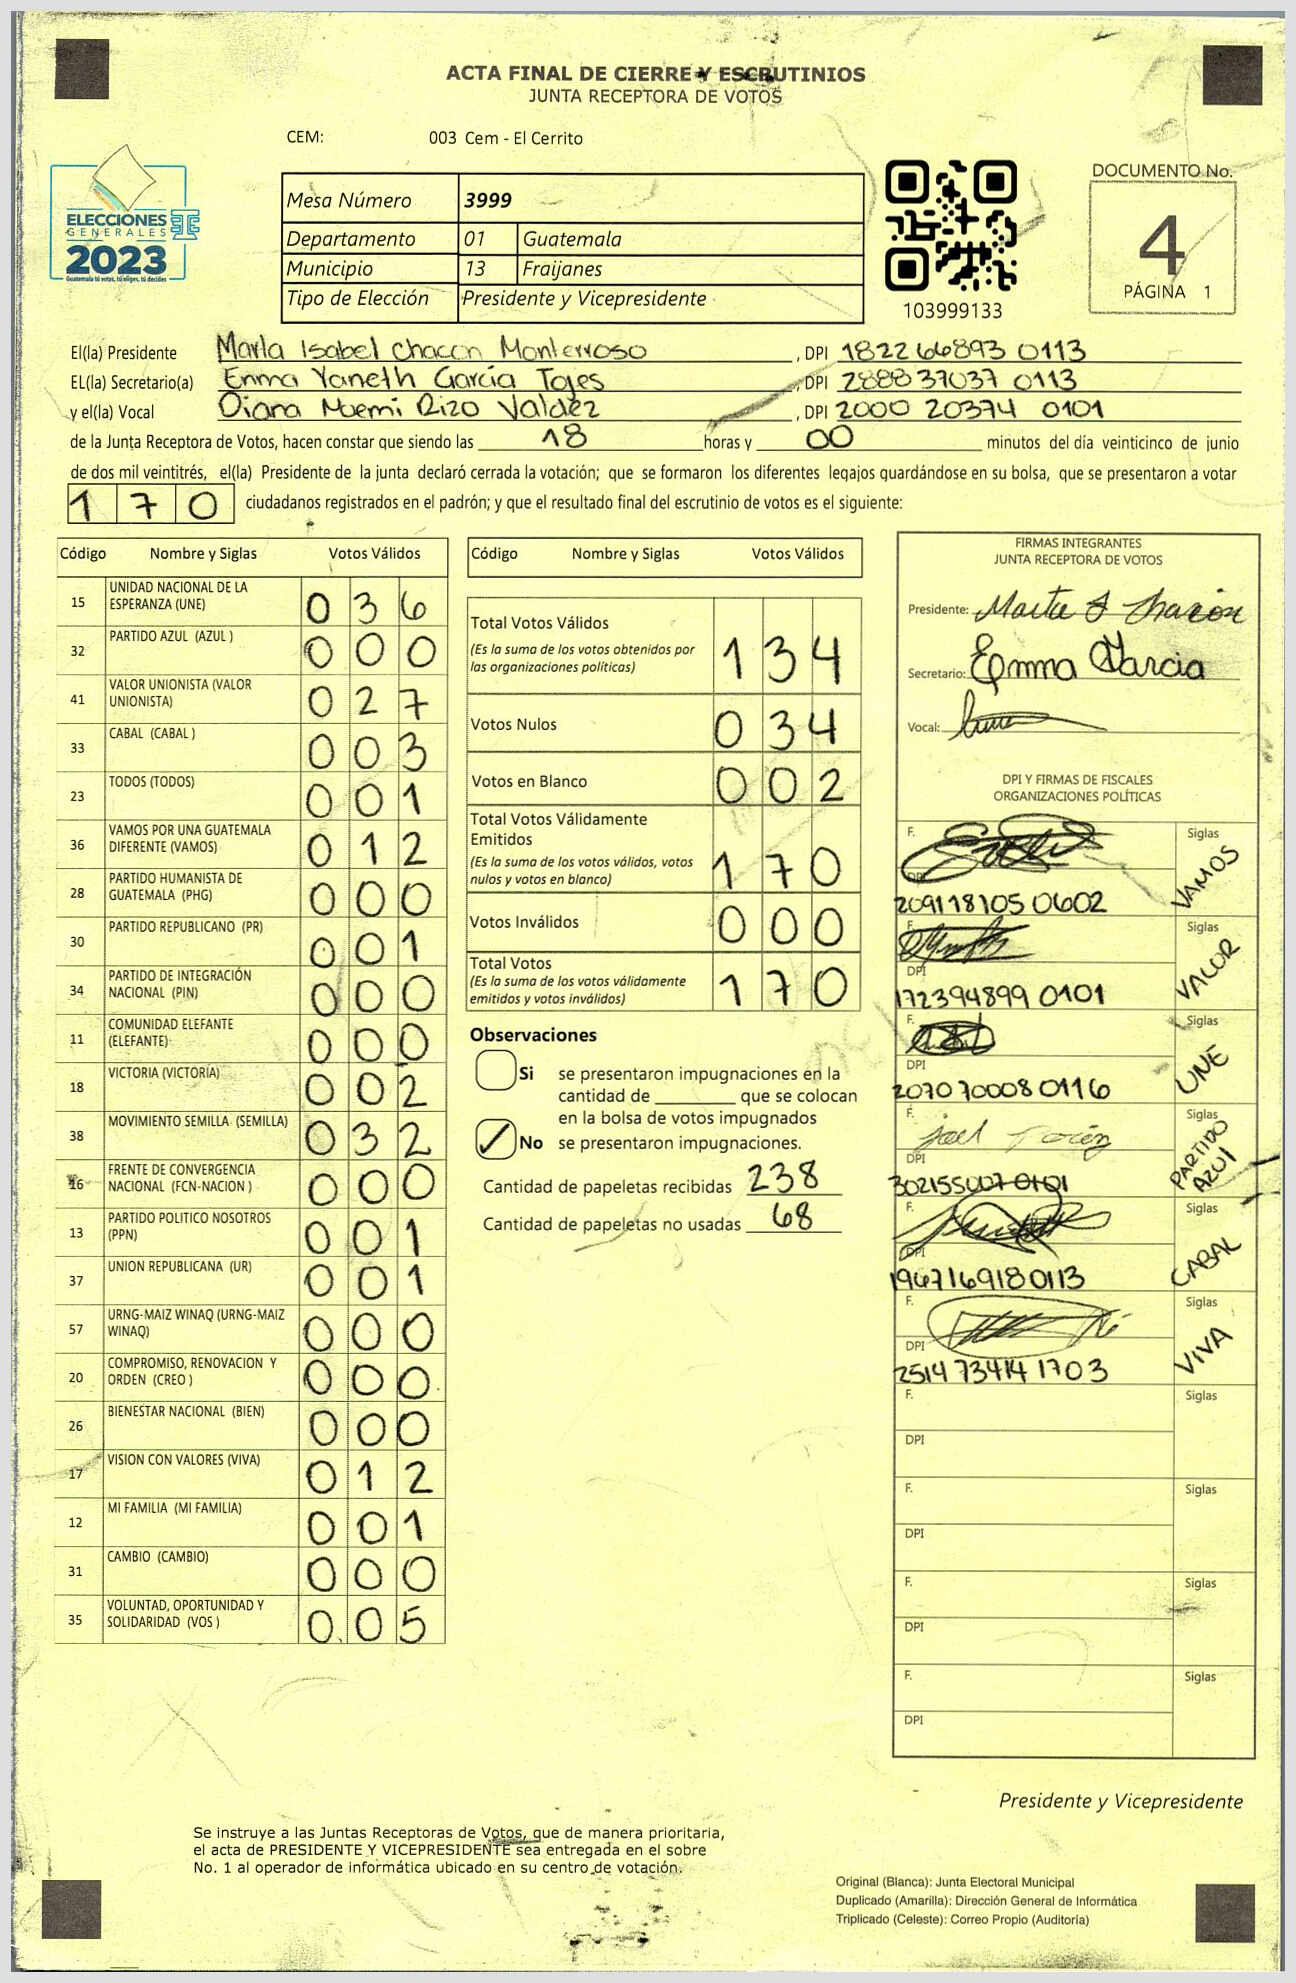 ACTA FINAL DE CIERRE Y ESCRUTINIOS
JUNTA RECEPTORA DE VOTOS
CEM: 003 Cem - El Cerrito
ELECCIONES
GENERALES
2023
Guatemala tú votas, tú eliges, tú decides
Mesa Número 3999
Departamento 01 Guatemala
Municipio 13 Fraijanes
Tipo de Elección Presidente y Vicepresidente
103999133
DOCUMENTO No.
4
PÁGINA 1
El(la) Presidente Marta Isabel Chacon Monterroso, DPI 182266893 0113
EL(la) Secretario(a) Emma Yaneth García Tajes, DPI 288837037 0113
y el(la) Vocal Diana Noemi Rizo Valdéz, DPI 2000 20374 0101
de la Junta Receptora de Votos, hacen constar que siendo las 18 horas y 00 minutos del día veinticinco de junio
de dos mil veintitrés, el(la) Presidente de la junta declaró cerrada la votación; que se formaron los diferentes legajos guardándose en su bolsa, que se presentaron a votar
170 ciudadanos registrados en el padrón; y que el resultado final del escrutinio de votos es el siguiente:
Código Nombre y Siglas Votos Válidos
15 UNIDAD NACIONAL DE LA ESPERANZA (UNE) 036
32 PARTIDO AZUL (AZUL ) 000
41 VALOR UNIONISTA (VALOR UNIONISTA) 027
33 CABAL (CABAL ) 003
23 TODOS (TODOS) 001
36 VAMOS POR UNA GUATEMALA DIFERENTE (VAMOS) 012
28 PARTIDO HUMANISTA DE GUATEMALA (PHG) 000
30 PARTIDO REPUBLICANO (PR) 001
34 PARTIDO DE INTEGRACIÓN NACIONAL (PIN) 000
11 COMUNIDAD ELEFANTE (ELEFANTE) 000
18 VICTORIA (VICTORIA) 002
38 MOVIMIENTO SEMILLA (SEMILLA) 032
16 FRENTE DE CONVERGENCIA NACIONAL (FCN-NACION ) 000
13 PARTIDO POLITICO NOSOTROS (PPN) 001
37 UNION REPUBLICANA (UR) 001
57 URNG-MAIZ WINAQ (URNG-MAIZ WINAQ) 000
20 COMPROMISO, RENOVACION Y ORDEN (CREO ) 000
26 BIENESTAR NACIONAL (BIEN) 000
17 VISION CON VALORES (VIVA) 012
12 MI FAMILIA (MI FAMILIA) 001
31 CAMBIO (CAMBIO) 000
35 VOLUNTAD, OPORTUNIDAD Y SOLIDARIDAD (VOS ) 005
Código Nombre y Siglas Votos Válidos
Total Votos Válidos 134
(Es la suma de los votos obtenidos por
las organizaciones políticas)
Votos Nulos 034
Votos en Blanco 002
Total Votos Válidamente
Emitidos 170
(Es la suma de los votos válidos, votos
nulos y votos en blanco)
Votos Inválidos 000
Total Votos 170
(Es la suma de los votos válidamente
emitidos y votos inválidos)
Observaciones
Si se presentaron impugnaciones en la
cantidad de ________ que se colocan
en la bolsa de votos impugnados
No se presentaron impugnaciones.
Cantidad de papeletas recibidas 238
Cantidad de papeletas no usadas 68
FIRMAS INTEGRANTES
JUNTA RECEPTORA DE VOTOS
Presidente: Marta I Chacón
Secretario: Emma Garcia
Vocal:
DPI Y FIRMAS DE FISCALES
ORGANIZACIONES POLÍTICAS
F. Siglas VAMOS
DPI 209118105 0602
F. Siglas VALOR
DPI 172394899 0101
F. Siglas UNE
DPI 2070700080116
F. Siglas PARTIDO AZUL
DPI
F. Siglas CABAL
DPI 1967169180113
F. Siglas VIVA
DPI 2514 73414 1703
F. Siglas
DPI
F. Siglas
DPI
F. Siglas
DPI
F. Siglas
DPI
Presidente y Vicepresidente
Se instruye a las Juntas Receptoras de Votos, que de manera prioritaria,
el acta de PRESIDENTE Y VICEPRESIDENTE sea entregada en el sobre
No. 1 al operador de informática ubicado en su centro de votación.
Original (Blanca): Junta Electoral Municipal
Duplicado (Amarilla): Dirección General de Informática
Triplicado (Celeste): Correo Propio (Auditoría)